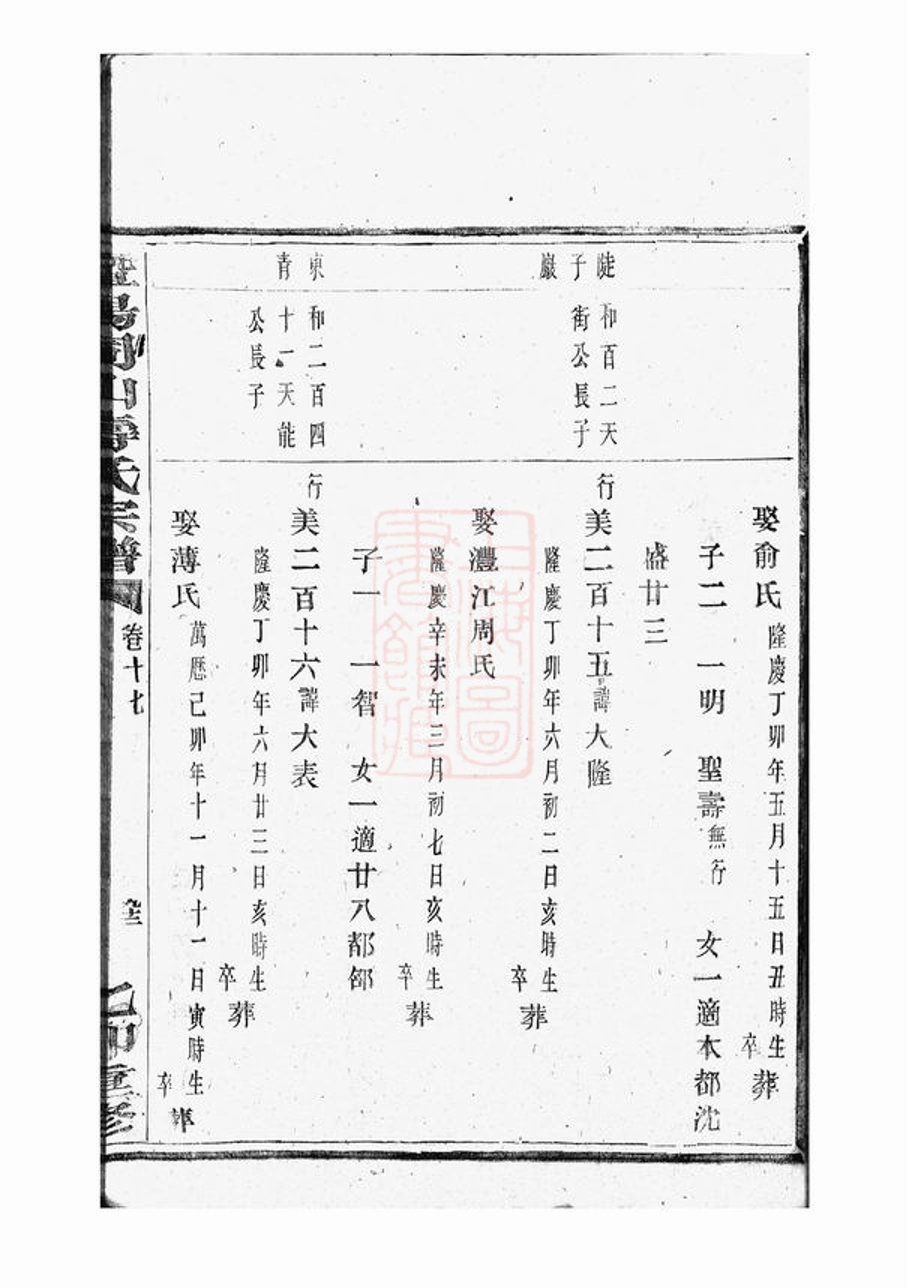 娶俞氏隆慶丁卯年五月十五日丑時生
卒
葬
子二 一明 聖壽無行 女一適本都沈
盛廿三
陡
和百二天
行美二百十五諱大隆
子
街公長子
巖
隆慶丁卯年六月初二日亥時生
卒
葬
娶灃江周氏
隆慶辛未年三月初七日亥時生
卒
葬
子一 一智 女一適廿八都郤
東
和二百四
行美二百十六諱大表
青
十一天能
公長子
隆慶丁卯年六月廿三日亥時生
卒
葬
娶薄氏萬厯己卯年十一月十一日寅時生
卒
葬
山壽氏宗譜
卷十七
乙卯重修